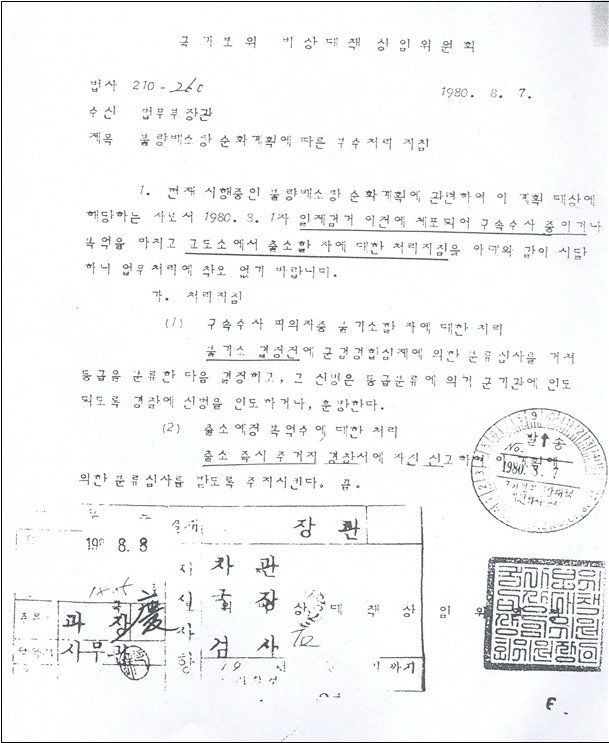 국가보위 비상대책 상임위원회
법사 210-260
1980. 8. 7.
수신 법무부장관
제목 불량배소탕 순화계획에 따른 부수처리 지침
1. 현재 시행중인 불량배소탕 순화계획에 관련하여 이 계획 대상에
해당하는 자로서 1980. 8. 1자 일제검거 이전에 체포되어 구속수사 중이거나
복역을 마치고 교도소에서 출소할 자에 대한 처리지침을 아래와 같이 시달
하니 업무처리에 착오 없기 바랍니다.
가. 처리지침
(1) 구속수사 피의자중 불기소할 자에 대한 처리
불기소 결정전에 군검경합심제에 의한 분류심사를 거쳐
등급을 분류한 다음 결정하고, 그 신병은 등급분류에 의거 군기관에 인도
되도록 경찰에 신병을 인도하거나, 훈방한다.
(2) 출소예정 복역수에 대한 처리
출소 즉시 주거지 경찰서에 자진 신고하여 이 계획에
의한 분류심사를 받도록 주지시킨다. 끝.
발송
No.
1980. 8. 7
8. 8
장관
차관
지시사항
국장
상 대 책 상 임 위
과장
慶
검사
사무관
까지